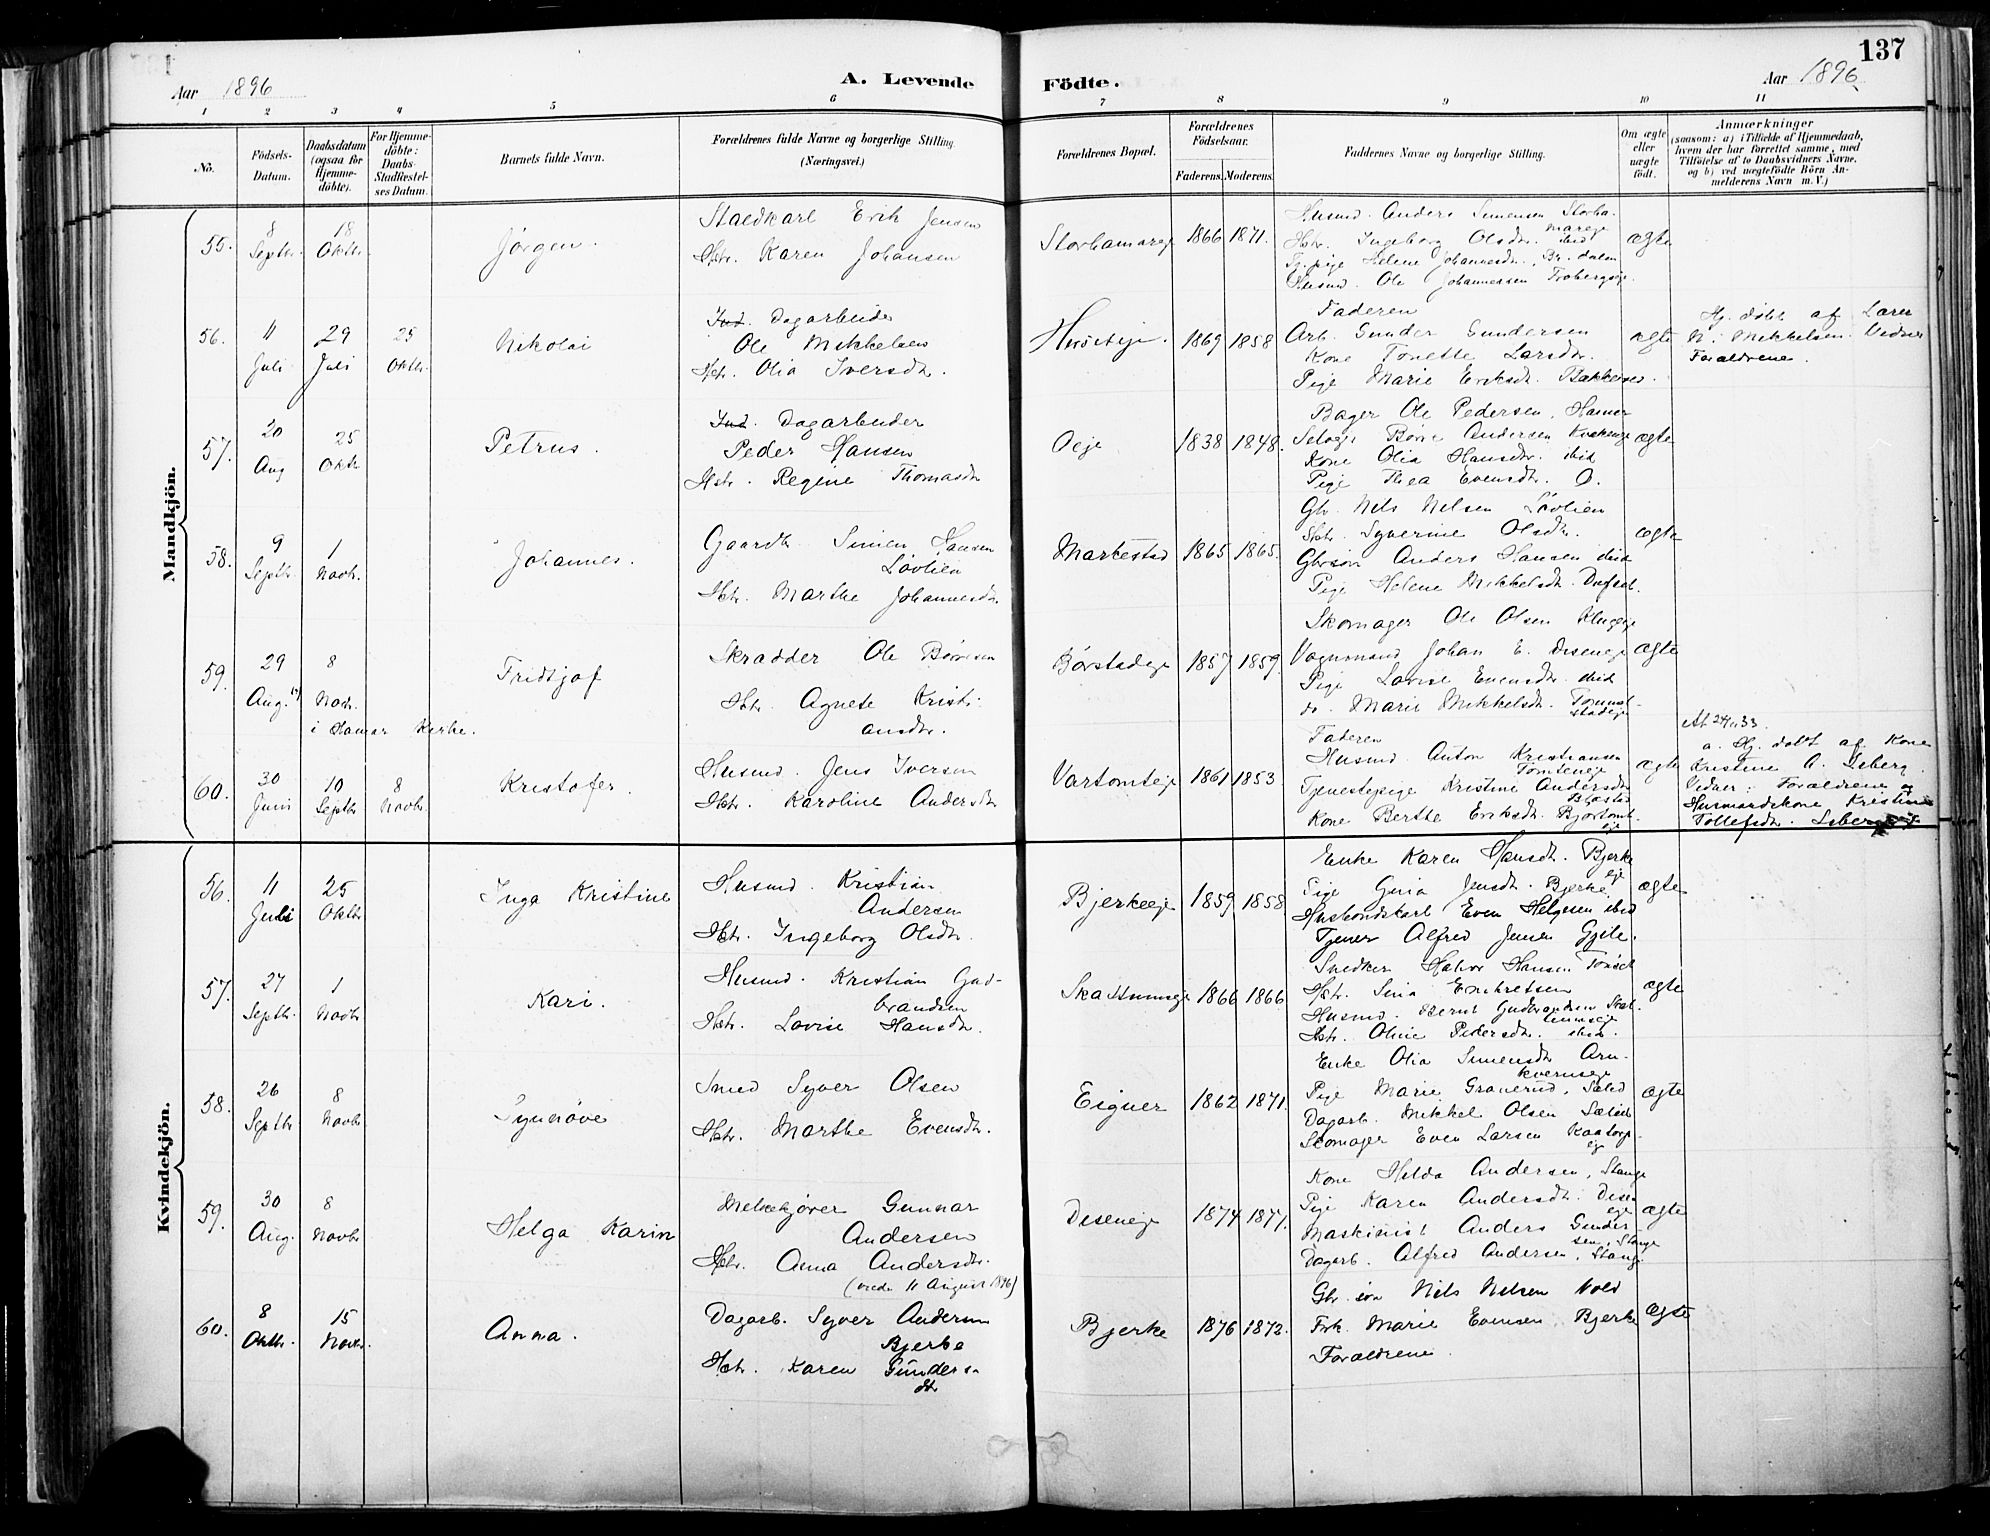 137
Aar 1896
A. Levende Födte.
Aar 1896
1 2 3 4 5 6 7 8 9 10 11
No.
Födsels-Datum.
Daabsdatum (ogsaa for Hjemme-döbte).
For Hjemme-döbte: Daabs-Stadfæstel-ses Datum.
Barnets fulde Navn.
Forældrenes fulde Navne og borgerlige Stilling. (Næringsvei.)
Forældrenes Bopæl.
Forældrenes Födselsaar.
Faderens. Moderens.
Faddernes Navne og borgerlige Stilling.
Om ægte eller uægte födt.
Anmærkninger
(saasom: a) i Tilfælde af Hjemmedaab,
hvem der har forrettet samme, med
Tilföielse af to Daabsvidners Navne,
og b) ved uægtefödte Börn An-
melderens Navn m. V.)
Mandkjön.
55. 8 Septbr. 18 Oktbr. Jörgen.
Staldkarl Erik Jensen
Hstr. Karen Johansen
Storhamareje 1866 1871.
Husmd. Anders Simensen Storha-
mareje
Hstr. Ingeborg Olsdtr. ibid
Tj. pige Helene Johannesdtr.
Husmd. Ole Johannessen
ægte
56. 11 Juli 29 Juli 25 Oktbr. Nikolai
Ind. Dagarbeider
Ole Mikkelsen
Hstr. Olia Iversdtr.
1869 1858
Faderen
Arb. Gunder Gundersen
Kone Tonette Larsdtr.
Pige Marie Eriksdtr.
ægte
Hj. döbt af Lærer
N. Mikkelsen. Vidner
Forældrene.
57. 20 Aug 25 Oktbr Petrus.
Ind. Dagarbeider
Peder Hansen
Hstr. Regine Thomasdtr
Oeje 1838 1848.
Bager Ole Pedersen, Hamar
Selveje Börre Andersen
Kone Olia Hansdtr. ibid
Pige Thea Evensdtr. O.
ægte
58. 9 Septbr. 1 Novbr. Johannes.
Gaardbr. Simen Hansen
Lövlien
Hstr. Marthe Johannesdtr.
Markestad 1865 1865.
Gbr. Nils Nilsen Lövlien
Hstr. Syverine Olsdtr.
Gbrsön Anders Hansen ibid
Pige Helene Mikkelsdtr.
ægte
59. 29 Aug. 8 Novbr. Fridtjof
i Hamar Kirke.
Skrædder Ole Börresen
Hstr. Agnete Kristi-
ansdtr.
Börstadeje 1857 1859.
Skomager Ole Olsen
Vognmand Johan E. Diseneje
Pige Lovise Evensdtr. ibid
do. Marie Mikkelsdtr.
ægte
60. 30 Juni 10 Septbr 8 Novbr. Kristofer.
Husmd. Jens Iversen
Hstr. Karoline Andersdtr
Vartomteje 1861 1853
Faderen
Husmd. Anton Kristiansen
Tomteneje
Tjenestepige Kristine Andersdtr
Kone Berthe Eriksdtr.
ægte
a. Hj. döbt af Kone
Kristine A. Liberg.
Vidner: Forældrene og
Husmandskone Kristine
Tollefsdtr.
Kvindekjön.
56. 11 Juli 25 Oktbr Inga Kristine
Husmd. Kristian
Andersen
Hstr. Ingeborg Olsdtr.
Bjerkeeje 1859 1858
Enke Karen Hansdtr. Bjerke
eje
Pige Gina Jensdtr. Bjerke
Husbondskarl Even Helgesen ibid
Tjener Alfred Jensen
ægte
57. 27 Septbr. 1 Novbr Kari.
Husmd. Kristian Gud-
brandsen
Hstr. Lovise Hansdtr.
1866 1866
Snedker Halvor Hansen
Hstr. Sina
Husmd. Bernt Gudbrandsen
Hstr. Oline Pedersdtr. ibid.
ægte
58. 26 Septbr 8 Novbr Synnöve
Smed Syver Olsen
Hstr. Marthe Evensdtr.
Eigner 1862 1871.
Enke Olia Simensdtr Arn-
kverneje
Pige Marie Granerud,
Dagarb. Mikkel Olsen
Skomager Even Larsen
ægte
59. 30 Aug. 8 Novbr Helga Karin
Melkekjörer Gunnar
Andersen
Hstr. Anna Andersdtr.
(viede 11 August 1896)
Diseneje 1874 1877.
Kone Hilda Andersen, Stange
Pige Karen Andersdtr. Disen
eje
Maskinist Anders Gunder-
sen, Stange
Dagarb. Alfred Andersen, Stange
ægte
60. 8 Oktbr. 15 Novbr. Anna.
Dagarb. Syver Andersen
Bjerke
Hstr. Karen Gunders-
dtr
Bjerke 1876 1872.
Gbr. sön Nils Nilsen Vold
Frk. Marie Evensen, Bjerke
Forældrene.
ægte